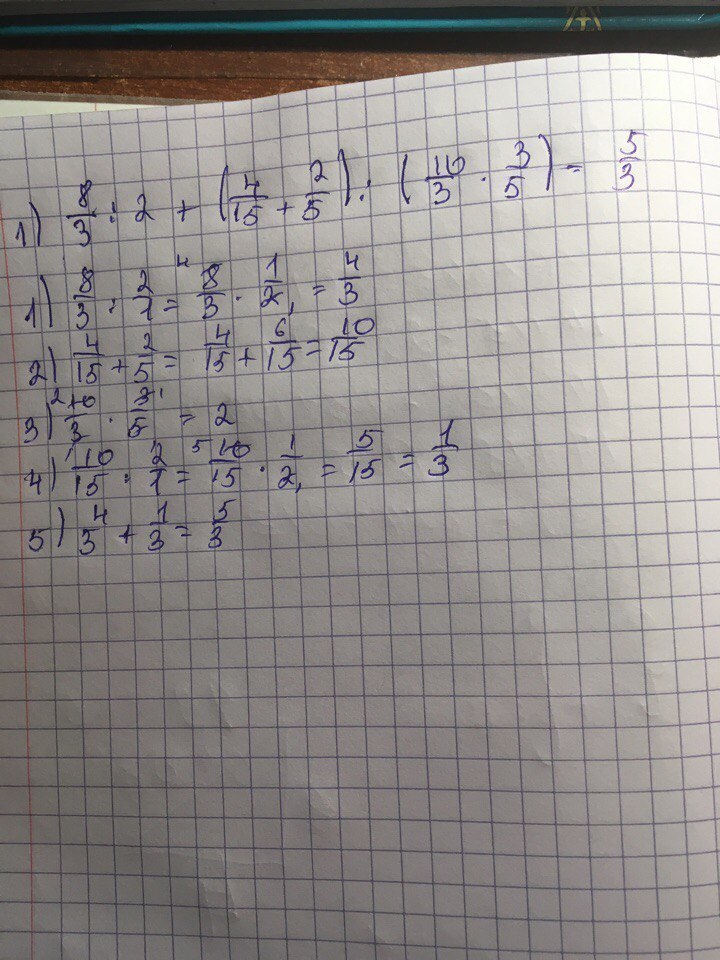 1) 8/3 : 2 + (4/15 + 2/5) : (10/3 · 3/5) = 5/3
1) 8/3 : 2/1 = 8/3 · 1/2 = 4/3
2) 4/15 + 2/5 = 4/15 + 6/15 = 10/15
3) 10/3 · 3/5 = 2
4) 10/15 : 2/1 = 10/15 · 1/2 = 5/15 = 1/3
5) 4/3 + 1/3 = 5/3